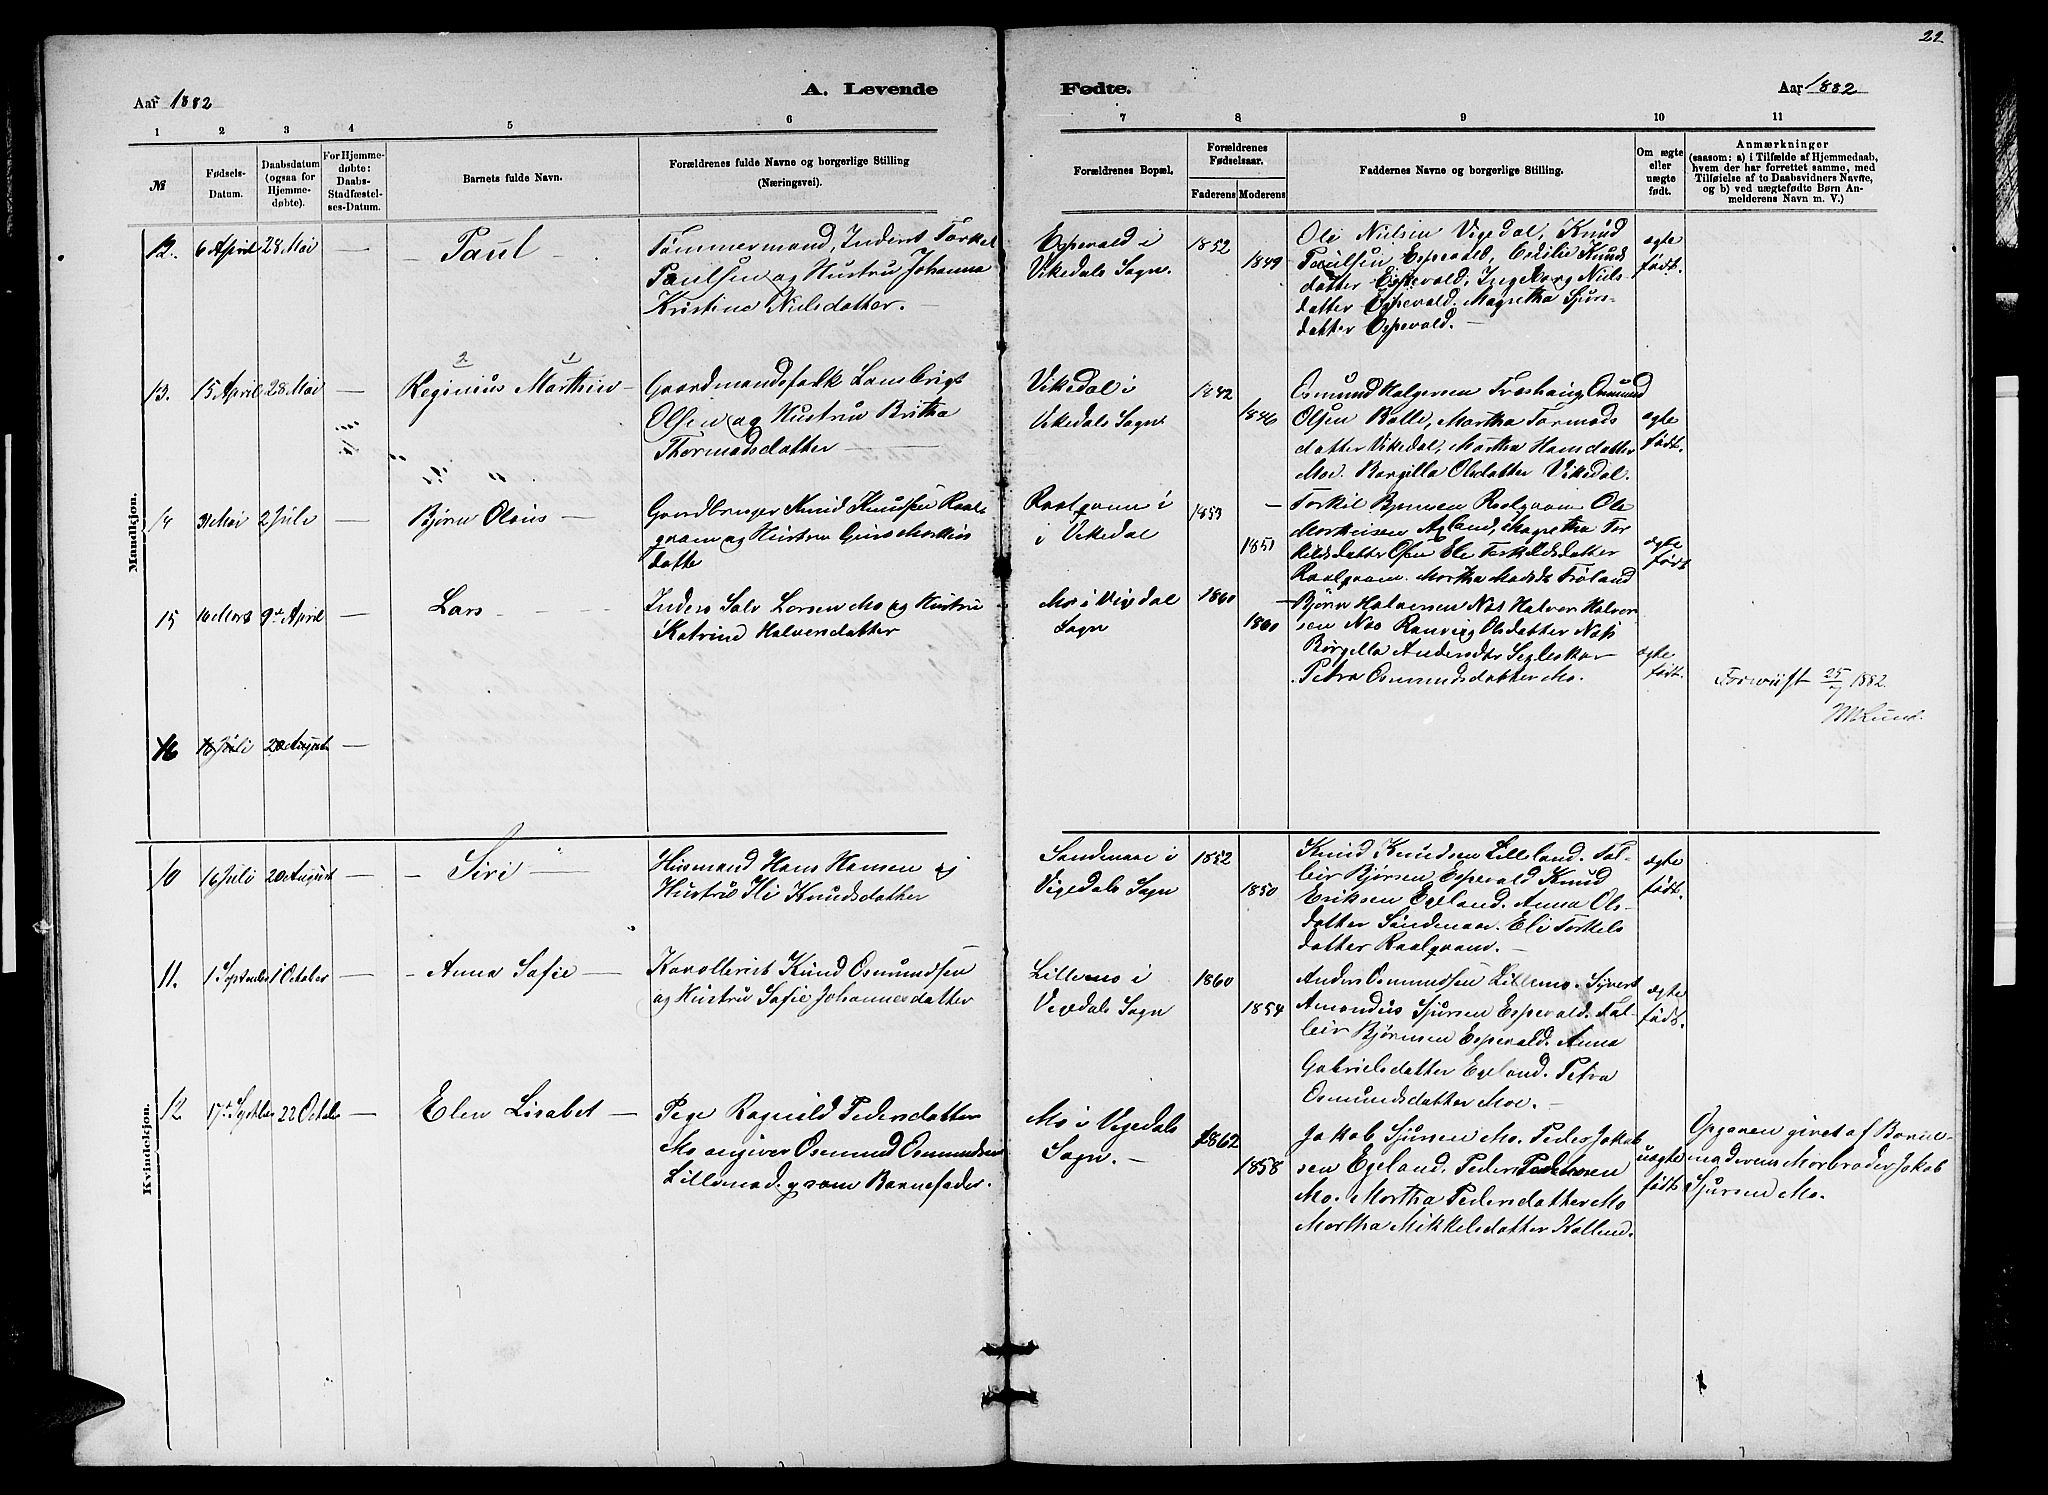 22
Aar 1882
A. Levende
Fødte.
Aar 1882
1 2 3 4 5 6
7 8 9 10 11
№
Fødsels-
Datum.
Daabsdatum
(ogsaa for
Hjemme-
døbte).
For Hjemme-
døbte:
Daabs-
Stadfæstel-
ses-Datum.
Barnets fulde Navn.
Forældrenes fulde Navne og borgerlige Stilling
(Næringsvei).
Forældrenes Bopæl.
Forældrenes
Fødselsaar.
Faderens Moderens
Faddernes Navne og borgerlige Stilling.
Om ægte
eller
uægte
født.
Anmærkninger
(saasom: a) i Tilfælde af Hjemmedaab,
hvem der har forrettet samme, med
Tilføielse af to Daabsvidners Navne,
og b) ved uægtefødte Børn An-
melderens Navn m. V.)
Mandkjøn.
12. 6 April 28 Mai — Paul
Tømmermand, Inderst Torkel
Paulsen og Hustru Johanna
Kristine Nielsdatter. —
Espevold i
Vikedals Sogn.
1852
1849
Ole Nielsen Vigedal, Knud
Paulsen Espevold, Cecilie Knuds
datter Espevold, Ingeborg Niels-
datter Espevold. Magretha Sjurs-
datter Espevold. —
ægte
født.
13. 15 April 28 Mai — Reginius Marthin —
2 1
Gaardmandsfolk Lambrigt
Olsen og Hustru Britha
Thormodsdatter —
Vikedal i
Vikedals Sogn
1842
1846
Osmund Halgersen Træshaug Osmund
Olsen Balle, Martha Tormods
datter Vikedal, Martha Hansdatter
Moe. Borgilla Olsdatter Vikedal.
ægte
født.
14 31 Mai 2 Juli — Bjørn Olaus —
Gaardbruger Knud Knudsen Raal-
gvam og Hustru Guro Morkus
datte
Raalgvam i
i Vikedal
1853
1851
Torkil Bjørnsen Raalgvam Ole
Morkusen Aaland, Magretha Tor
kildsdatter Ølen Ele Torkildsdatter
Raalgvam. Martha Madsdt Frøland
ægte
født
15 10 Mars 9de April — Lars
Inders Salv Larsen Mo og Hustru
Katrine Halvorsdatter
Mo i Vigdal
Sogn
1860
1860
Bjørn Halvorsen Næs Halvor Halvor
sen Næs Ranveig Olsdatter Næs
Børgilla Andersdtr Segleskor
Petra Osmundsdatter Mo.
ægte
født.
25
1882.
16 16 Juli 20 August —
Kvindekjøn.
10 16 Juli 20 August — Siri —
Husmand Hans Hansen og
Hustru Ili Knudsdatter
Sandenaae i
Vigedals Sogn
1852
1850
Knud Knudsen Lilleland. Tol-
leiv Bjørsen Espevold Knud
Eriksen Egeland. Anna Ols-
datter Søndenaae. Eli Torkels
datter Raalgvam. —
ægte
født.
11. 1 September 1 October — Anna Sofie —
Kavallerist Knud Osmundsen
og Hustru Sofie Johannesdatter
Lillemo i
Vegedals Sogn
1860
1854
Anders Osmundsen Lillemo. Sivert
Amandus Sjursen Espevold. Tol-
leiv Bjørnsen Espevold. Anna
Gabrielsdatter Egeland. Petra
Osmundsdatter Moe. —
ægte
født.
12 17de Septbr 22 October — Elen Lisabet —
Pige Ragnild Pedersdatter
Mo angiver Osmund Osmundsen
Lillemo som Barnefader.
Mo i Vegedals
Sogn. —
1862
1858
Jakob Sjursen Mo. Peder Jakob
sen Egeland. Peder Pedersen
Mo. Martha Pedersdatter Mo
Martha Mikkelsdatter Kalland.
uægte
født
Opgaven givet af Barne-
maderens Morbroder Jakob
Sjursen Mo.